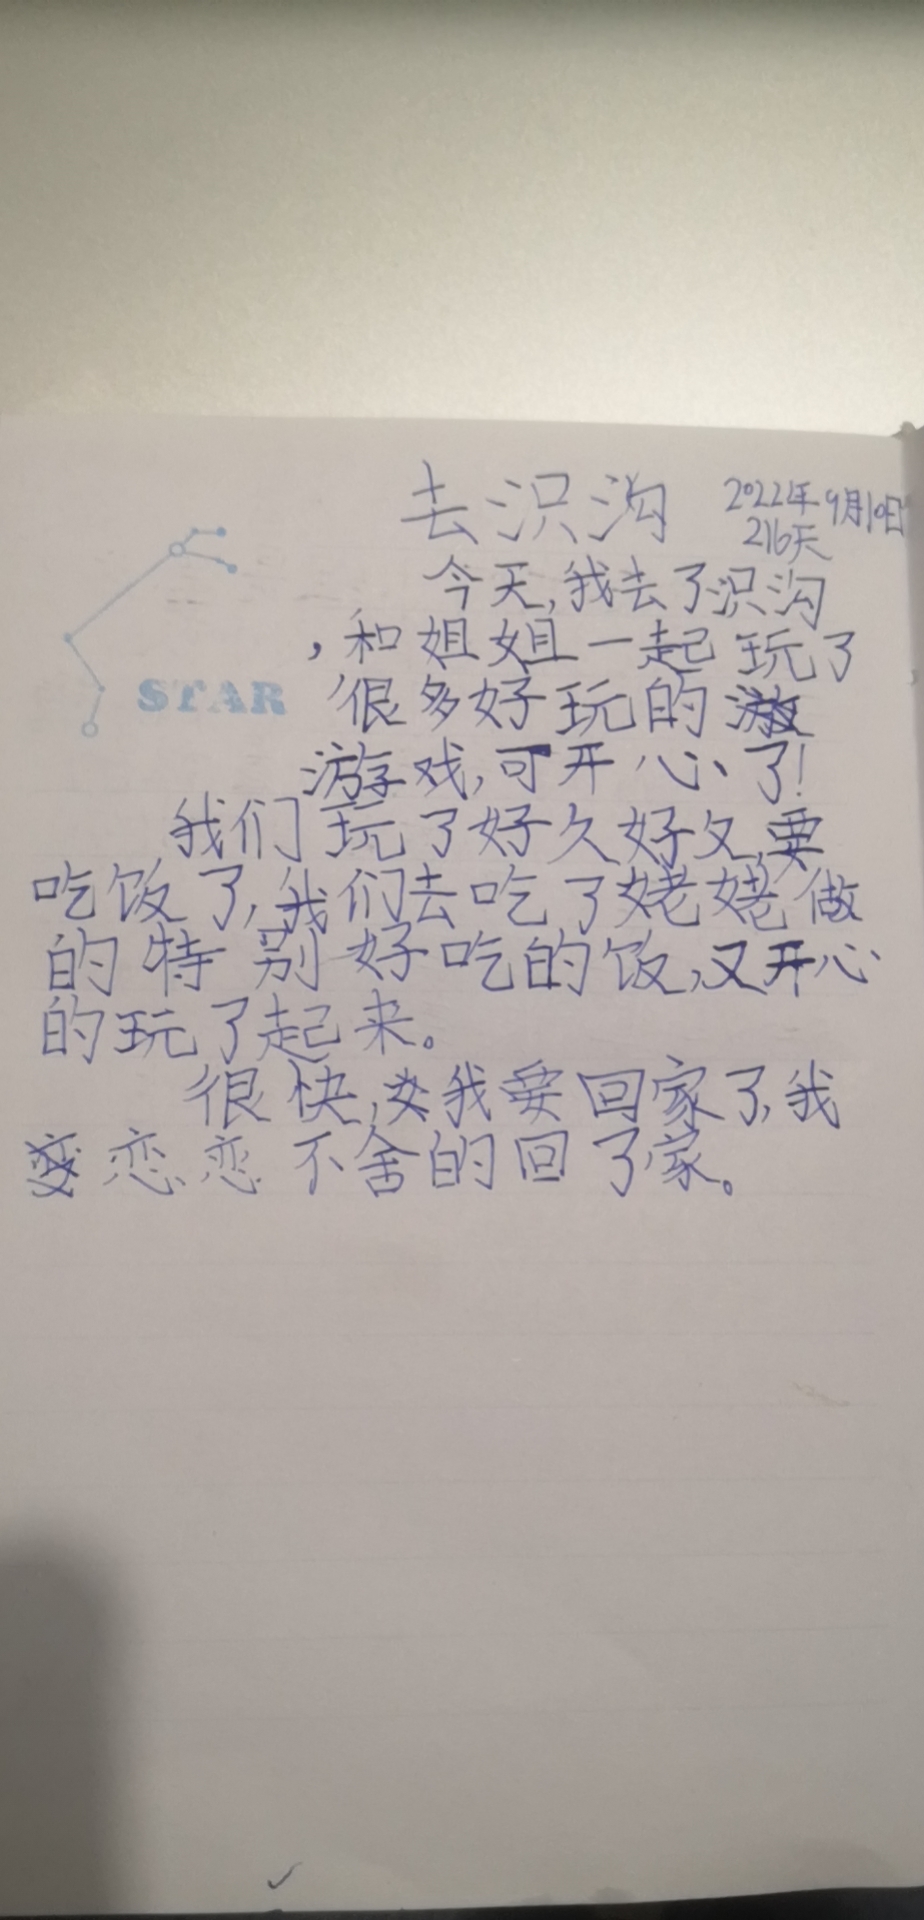 去识沟 2022年9月10日
216天
今天,我去了识沟
,和姐姐一起玩了
很多好玩的
STAR
游戏,可开心了!
我们玩了好久好久,要
吃饭了,我们去吃了姥姥做
的特别好吃的饭,又开心
的玩了起来。
很快,我要回家了,我
恋恋不舍的回了家。